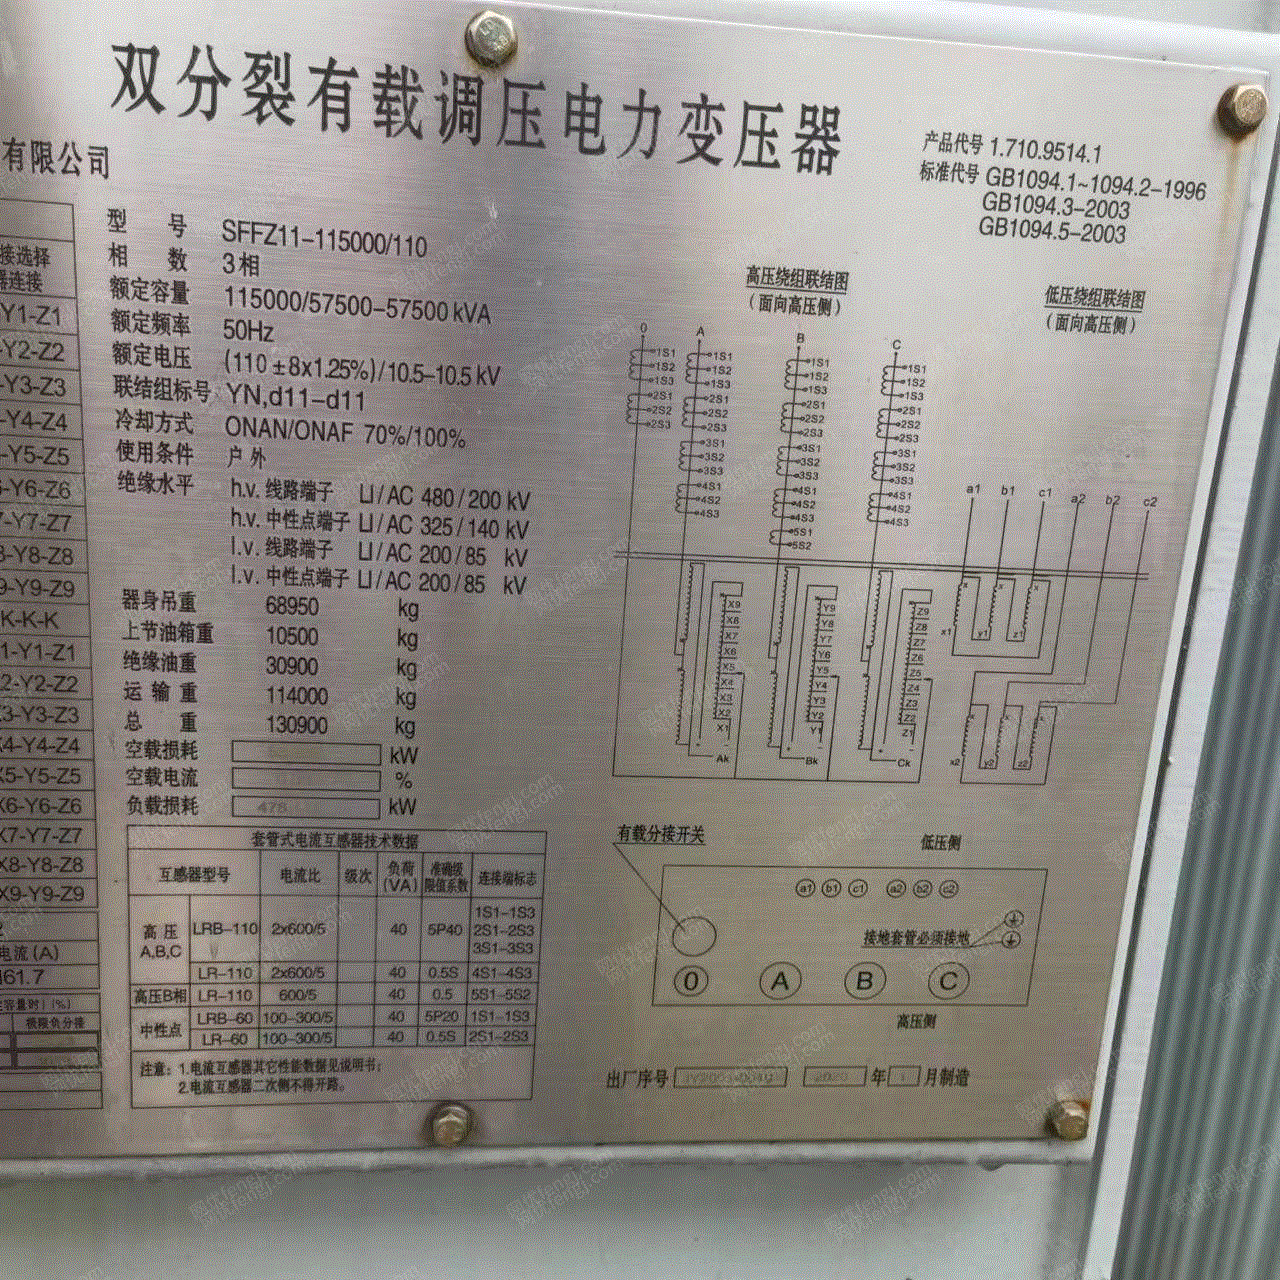 双分裂有载调压电力变压器
有限公司
产品代号 1.710.9514.1
标准代号 GB1094.1~1094.2-1996
GB1094.3-2003
GB1094.5-2003
接选择
器连接
-Y1-Z1
-Y2-Z2
-Y3-Z3
-Y4-Z4
-Y5-Z5
-Y6-Z6
-Y7-Z7
-Y8-Z8
-Y9-Z9
K-K-K
-Y1-Z1
-Y2-Z2
X3-Y3-Z3
X4-Y4-Z4
X5-Y5-Z5
X6-Y6-Z6
X7-Y7-Z7
X8-Y8-Z8
X9-Y9-Z9
电流(A)
461.7
极限负分接
型号 SFFZ11-115000/110
相数 3相
额定容量 115000/57500-57500kVA
额定频率 50Hz
额定电压 (110±8x1.25%)/10.5-10.5kV
联结组标号 YN,d11-d11
冷却方式 ONAN/ONAF 70%/100%
使用条件 户外
绝缘水平 h.v.线路端子 LI/AC 480/200 kV
h.v.中性点端子 LI/AC 325/140 kV
l.v.线路端子 LI/AC 200/85 kV
l.v.中性点端子 LI/AC 200/85 kV
器身吊重 68950 kg
上节油箱重 10500 kg
绝缘油重 30900 kg
运输重 114000 kg
总重 130900 kg
空载损耗 kW
空载电流 %
负载损耗 kW
套管式电流互感器技术数据
互感器型号 电流比 级次 负荷(VA) 准确级限值系数 连接端标志
高压A,B,C LRB-110 2x600/5 40 5P40 1S1-1S3 2S1-2S3 3S1-3S3
LR-110 2x600/5 40 0.5S 4S1-4S3
高压B相 LR-110 600/5 40 0.5 5S1-5S2
中性点 LRB-60 100-300/5 40 5P20 1S1-1S3
LR-60 100-300/5 40 0.5S 2S1-2S3
注意：1.电流互感器其它性能数据见说明书；
2.电流互感器二次侧不得开路。
高压绕组联结图
(面向高压侧)
低压绕组联结图
(面向高压侧)
0 A B C
1S1 1S1 1S1 1S1
1S2 1S2 1S2 1S2
1S3 1S3 1S3 1S3
2S1 2S1 2S1 2S1
2S2 2S2 2S2 2S2
2S3 2S3 2S3 2S3
3S1 3S1 3S1
3S2 3S2 3S2
3S3 3S3 3S3
4S1 4S1 4S1
4S2 4S2 4S2
4S3 4S3 4S3
5S1
5S2
a1 b1 c1 a2 b2 c2
X9 Y9 Z9
X8 Y8 Z8
X7 Y7 Z7
X6 Y6 Z6
X5 Y5 Z5
X4 Y4 Z4
X3 Y3 Z3
X2 Y2 Z2
X1 Y1 Z1
Ak Bk Ck
x1 y1 z1
x2 y2 z2
有载分接开关
低压侧
a1 b1 c1 a2 b2 c2
接地套管必须接地
0 A B C
高压侧
出厂序号 年 1 月制造